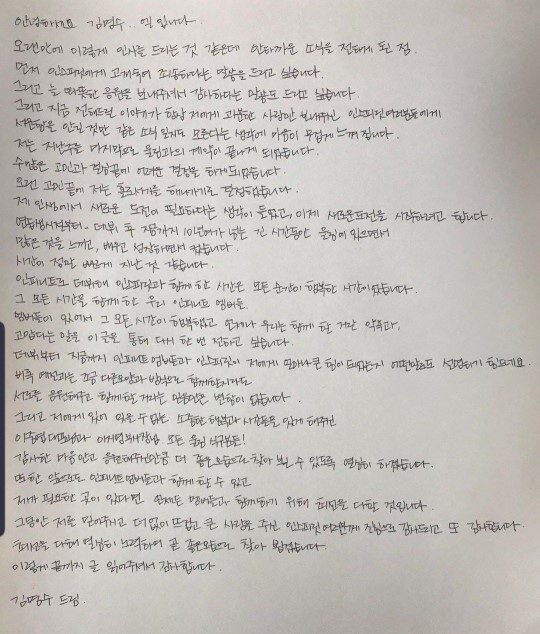 안녕하세요 김명수.. 엘 입니다.
오랜만에 이렇게 인사를 드리는 것 같은데 안타까운 소식을 전하게 된 점.
먼저 인스피릿에게 고개숙여 죄송하다는 말씀을 드리고 싶습니다.
그리고 늘 따뜻한 응원을 보내주셔서 감사하다는 말씀도 드리고 싶습니다.
그리고 지금 전해드릴 이야기가 항상 저에게 과분한 사랑만 보내주신 인스피릿여러분들에게
서운함을 안길 것만 같은 소식 일지도 모른다는 생각에 마음이 무겁게 느껴집니다.
저는 지난주를 마지막으로 울림과의 계약이 끝나게 되었습니다.
수많은 고민과 결정끝에 어려운 결정을 하게되었습니다.
오랜 고민끝에 저는 홀로서기를 해나가기로 결정하였습니다.
제 인생에서 새로운 도전이 필요하다는 생각이 들었고, 이제 새로운도전을 시작하려고 합니다.
연습생시절부터.. 데뷔 후 지금까지 10년여가 넘는 긴 시간동안 울림에 있으면서
많은 것을 느끼고, 배우고 성장하면서 컸습니다.
시간이 정말 빠르게 지난 것 같습니다.
인피니트로 데뷔해 인스피릿과 함께 한 시간은 모든 순간이 행복한 시간이었습니다.
그 모든 시간을 함께 한 우리 인피니트 멤버들.
멤버들이 있어서 그 모든 시간이 행복했고 언제나 우리는 함께 할 거란 약속과,
고맙다는 말을 이 글을 통해 다시 한 번 전하고 싶습니다.
데뷔부터 지금까지 인피니트 멤버들과 인스피릿이 저에게 얼마나 큰 힘이 되었는지 어떤말로도 설명하기 힘드네요.
비록 예전과는 조금 다른모양과 방식으로 함께할지라도
서로를 응원해주고 함께할 거라는 믿음만은 변함이 없습니다.
그리고 저에게 있어 잊을 수 없는 소중한 행복과 시간들을 있게 해주신
이중엽대표님과 이지영부사장님 모든 울림 식구분들!
감사한 마음안고 응원해주신만큼 더 좋은모습으로 찾아 뵐 수 있도록 열심히 하겠습니다.
또한 앞으로도 인피니트멤버들과 함께 할 수 있고
제가 필요한 곳이 있다면 언제든 멤버들과 함께하기 위해 최선을 다할 것입니다.
그동안 저를 믿어주시고 더없이 뜨겁고 큰 사랑을 주신 인스피릿여러분께 진심으로 감사드리고 또 감사합니다.
최선을 다해 열심히 노력하여 곧 좋은모습으로 찾아 뵙겠습니다.
이렇게 끝까지 글 읽어주셔서 감사합니다.
김명수 드림.